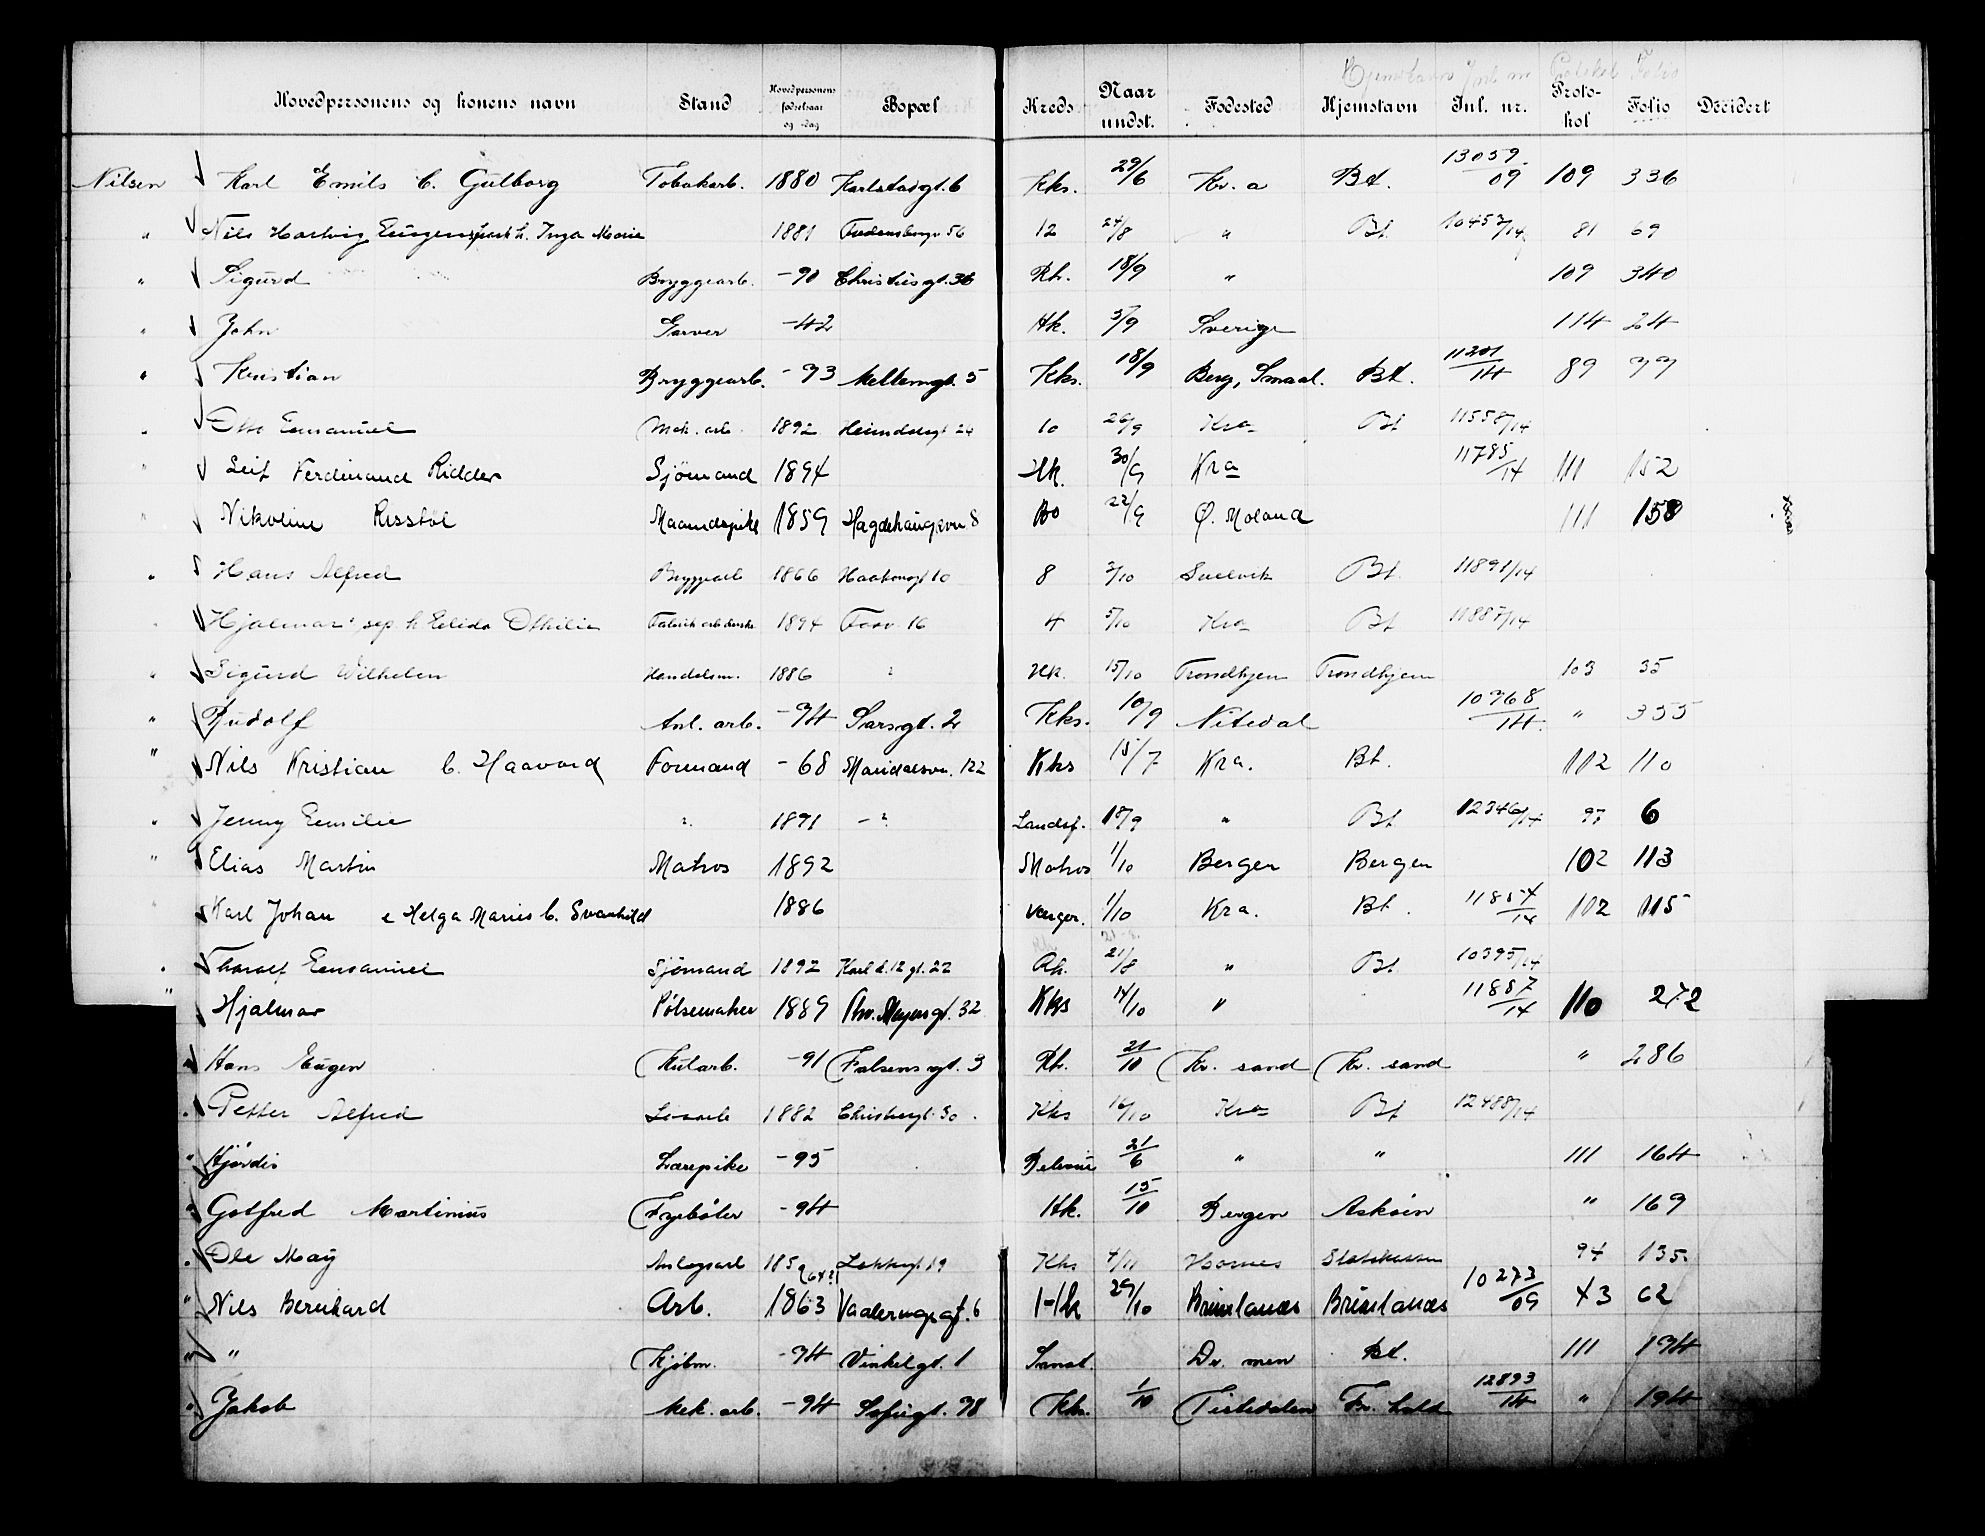 Hjemstavn Jnl. nr. Protokol Folio
Hovedpersonens og konens navn Stand Hovedpersonens fødselsaar og -dag Bopæl Kreds Naar undst. Fødested Hjemstavn Jnl. nr. Protokol Folio Decidert
Nilsen Karl Emils b. Gulborg Tobakarb. 1880 Karlstadgt. 6 Kks. 29/6 Kr.a Bt. 13059/09 109 336
" Nils Hartvig Eugens h. Inga Marie 1881 56 12 24/8 " Bt 10453/14 81 69
" Sigurd Bryggearb. -90 Christiesgt. 36 Rh. 18/9 " 109 340
" John Garver -42 Hk. 3/9 Sverige 114 24
" Kristian Bryggearb. -93 Mellemgt. 5 Kks. 18/9 Berg, Smaal. Bt. 11201/14 89 77
" Otto Emanuel Mek. arb. 1892 Heimdalsgt 24 10 26/9 Kra Bt 11558/14
" Leif Ferdinand Ridder Sjömand 1894 Hk. 30/9 Kra 11785/14 111 152
" Nikoline Risstöl Maanedspike 1859 Hagdehaugsvn 8 Bo 22/9 Ø. Moland 111 158
" Hans Alfred Bryggearb 1866 Haakonsgt 10 8 3/10 Svelvik Bt. 11891/14
" Hjalmar sep. h Elida Othilie Fabrik arb 1894 Fossv. 16 4 5/10 Kra Bt 11887/14
" Sigurd Wilhelm Handelsm. 1886 ? Hk. 15/10 Trondhjem Trondhjem 103 35
" Rudolf Anl. arb. -94 Sarsgt. 2 Kks. 10/9 Nitedal 10968/14 " 355
" Nils Kristian b. Haavard Formand -68 Maridalsvn. 122 Kks 15/7 Kra. Bt. 102 110
" Jenny Emilie ? 1891 - ? Landsf. 18/9 " Bt 12346/14 97 6
" Elias Martin Matros 1892 Matros 1/10 Bergen Bergen 102 113
" Karl Johan e Helga Maries b. Svanhild 1886 Værger. 1/10 Kra. Bt. 11854/14 102 115
" Tharalf Emanuel Sjömand 1892 Karl d. 12 gt. 22 Rh. 21/8 " Bt 10395/14
" Hjalmar Pölsemaker 1889 Thv. Meyersgt. 32 Kks 14/10 " 11887/14 110 272
" Hans Eugen Kularb. -91 Falsensgt. 3 Rh. 21/10 Kr. sand Kr. sand " 286
" Petter Alfred Lösarb 1882 Christiesgt. 30 Kks 16/10 Kra Bt 12488/14
" Hjördis Lærepike -95 21/6 " " 111 164
" Gotfred Martinius Fyrböter -94 Hk. 15/10 Bergen Asköen " 169
" Ole May Anlegsarb 1859 (64?) Lakkegt 19 Kks 4/11 Hornes Statskassen 94 135
" Nils Bernhard Arb. 1863 Vaalerenggt. 6 Hk 29/10 Brunlanæs Brunlanæs 10273/09 43 62
" " Kjöbm. -94 Vinkelgt. 1 Dr. men Bt. 111 194
" Jakob Mek. arb. -94 Sofiegt. 78 Kks. 1/10 Tistedalen Fr. hald 12893/14 " 194